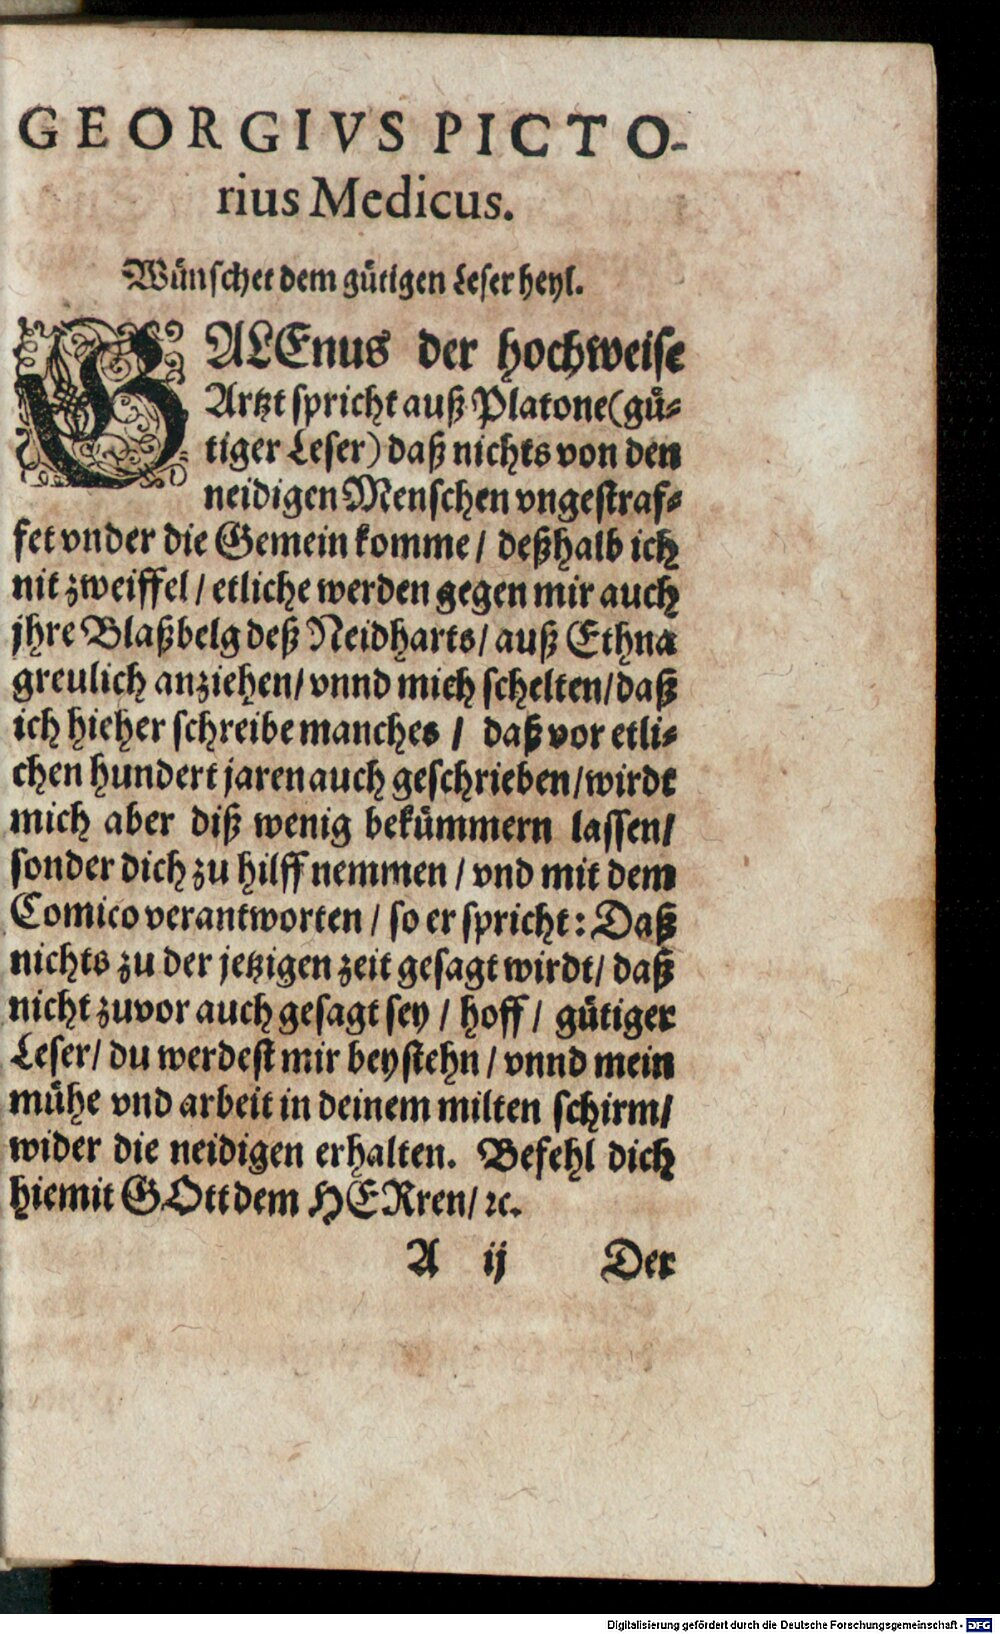 GEORGIVS PICTO-
rius Medicus.
Wünschet dem gütigen Leser heyl.
GALEnus der hochweise
Artzt spricht auß Platone (gü-
tiger Leser) daß nichts von den
neidigen Menschen vngestraf-
fet vnder die Gemein komme / deßhalb ich
nit zweiffel / etliche werden gegen mir auch
jhre Blaßbelg deß Neidharts / auß Ethna
greulich anziehen / vnnd mich schelten / daß
ich hieher schreibe manches / daß vor etli-
chen hundert jaren auch geschrieben / wirdt
mich aber diß wenig bekümmern lassen /
sonder dich zu hilff nemmen / vnd mit dem
Comico verantworten / so er spricht: Daß
nichts zu der jetzigen zeit gesagt wirdt / daß
nicht zuvor auch gesagt sey / hoff / gütiger
Leser / du werdest mir beystehn / vnnd mein
mühe vnd arbeit in deinem milten schirm /
wider die neidigen erhalten. Befehl dich
hiemit GOtt dem HERren / ꝛc.
A ij Der
Digitalisierung gefördert durch die Deutsche Forschungsgemeinschaft - DFG